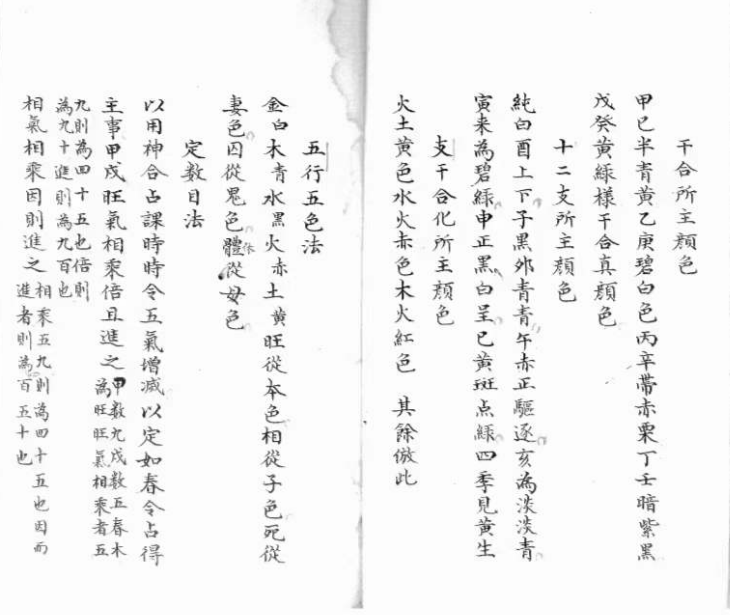 干合所主顏色
甲巳半青黃乙庚碧白色丙辛帶赤栗丁壬暗紫黑
戊癸黃綠樣干合真顏色
十二支所主顏色
純白酉上下子黑外青青午赤正驅逐亥為淡淡青
寅來為碧綠申正黑白呈巳黃斑点綠四季見黃生
支干合化所主顏色
火土黃色水火赤色木火紅色 其餘倣此
五行五色法
金白木青水黑火赤土黃旺從本色相從子色死從
妻色囚從鬼色體休從母色
定數目法
以用神合占課時時令五氣增減以定如春令占得
主事甲戌旺氣相乘倍且進之甲數九戌數五春木
為旺旺氣相乘者五
九則為四十五也倍則
為九十進則為九百也
相氣相乘因則進之相乘五九則為四十五也因而
進者則為百五十也